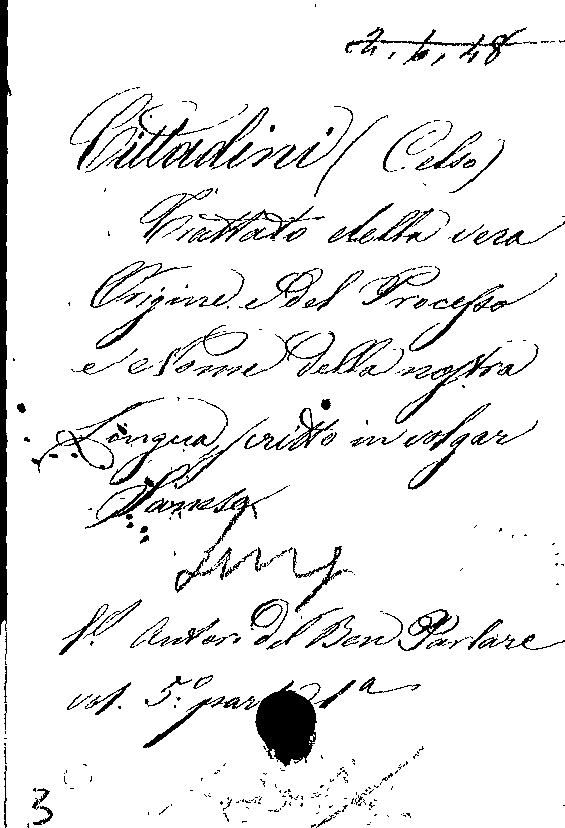 2. 6, 48
Cittadini (Celso)
Trattato della vera
Origine e del Processo
e Nome della nostra
Lingua, scritto in volgar
Sanese
Autori del Ben Parlare
vol. 5.º parte 1ª
3